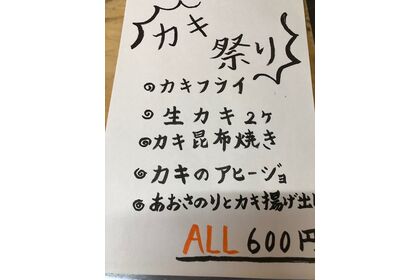 カキ祭り
カキフライ
生カキ2ケ
カキ昆布焼き
カキのアヒージョ
あおさのりとカキ揚げ出し
ALL 600円